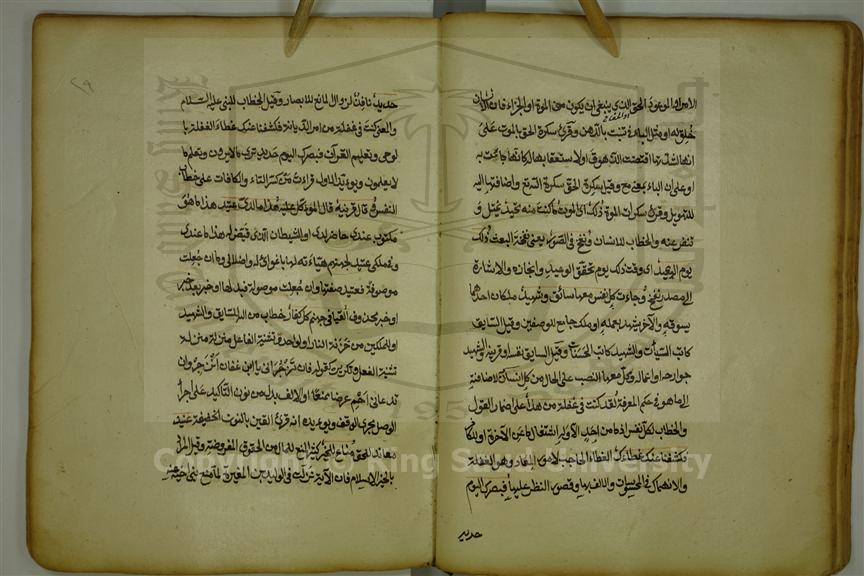 الامر او الموعود الحق الذي ينبغي ان يكون من الموت او الجزاء فان الانسان
خلق له او مثل الباء في تنبت بالدهن وقرئ سكرة الحق بالموت على
انها لشدتها اقتضت الزهوق او لاستعقابها له كانها جاءت به
او على ان الباء بمعنى مع وقيل سكرة الحق سكرة الله واضافتها اليه
للتهويل وقرئ سكرات الموت ذلك اى الموت ما كنت منه تحيد تميل و
تنفر عنه والخطاب للانسان ونفخ في الصور يعني نفخة البعث ذلك
يوم الوعيد اى وقت ذلك يوم تحقق الوعيد وانجازه والاشارة
الى مصدر نفخ وجاءت كل نفس معها سائق وشهيد ملكان احدهما
يسوقه والآخر يشهد بعمله او ملك جامع للوصفين وقيل السايق
كاتب السيئات والشهيد كاتب الحسنات وقيل السايق نفسه او قرينه والشهيد
جوارحه او اعماله ومحل معها النصب على الحال من كل لاضافته
الى ما هو في حكم المعرفة لقد كنت في غفلة من هذا على اضمار القول
والخطاب لكل نفس اذ ما من احد الا وله اشتغال ما عن الآخرة او للكافر
فكشفنا عنك غطاءك الغطاء الحاجب لامور المعاد وهو الغفلة
والانهماك في المحسوسات والالف بها وقصور النظر عليها فبصرك اليوم
حديد
٢٩
حديد نافذ لزوال المانع للابصار وقيل الخطاب للنبي عليه السلام
والمعنى كنت في غفلة من امر الديانة فكشفنا عنك غطاء الغفلة با
لوحى وتعليم القرآن فبصرك اليوم حديد ترى ما لا يرون وتعلم ما
لا يعلمون ويؤيد الاول قراءة من كسر التاء والكافات على خطاب
النفس وقال قرينه قال الموكل عليه هذا ما لدى عتيد هذا ما هو
مكتوب عندى حاضر لدى او الشيطان الذى قيض له هذا ما عندى
وفي ملكتى عتيد لجهنم هيأته لها باغوائى واضلالى وما ان جعلت
موصوفة فعتيد صفتها وان جعلت موصولة فبدلها او خبر بعد خبر
او خبر محذوف القيا في جهنم كل كفار خطاب من الله للسايق والشهيد
او لملكين من خزنة النار او لواحد وتثنية الفاعل منزل منزلة
تثنية الفعل وتكريره كقوله فان تزجراني يا ابن عفان انزجر وان
تدعاني احم عرضا ممنعا او الالف بدل من نون التأكيد على اجراء
الوصل مجرى الوقف ويؤيده انه قرئ القين بالنون الخفيفة عنيد
معاند للحق مناع للخير كثير المنع للمال من الحقوق المفروضة وقيل المراد
بالخير الاسلام فان الآية نزلت في الوليد بن المغيرة لما منع بنى اخيه عنه
Copyright © King Saud University